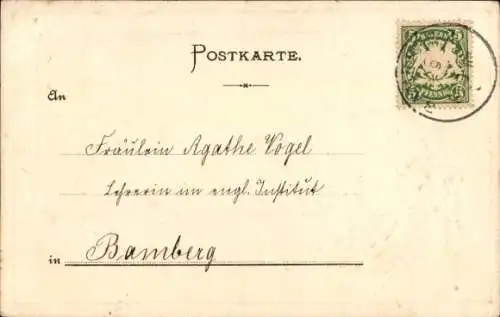 POSTKARTE.
BAYERN
PFENNIG
An
Fräulein Agathe Vogel
Lehrerin im engl. Institut
in Bamberg